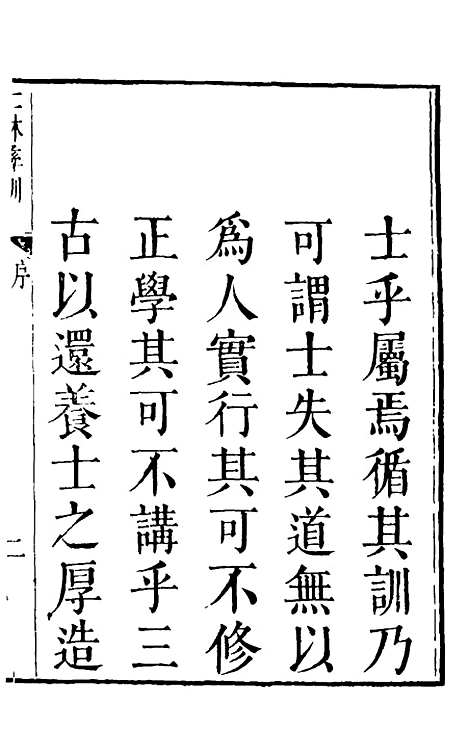 士乎屬焉循其訓乃
可謂士失其道無以
爲人實行其可不修
正學其可不講乎三
古以還養士之厚造
序
二